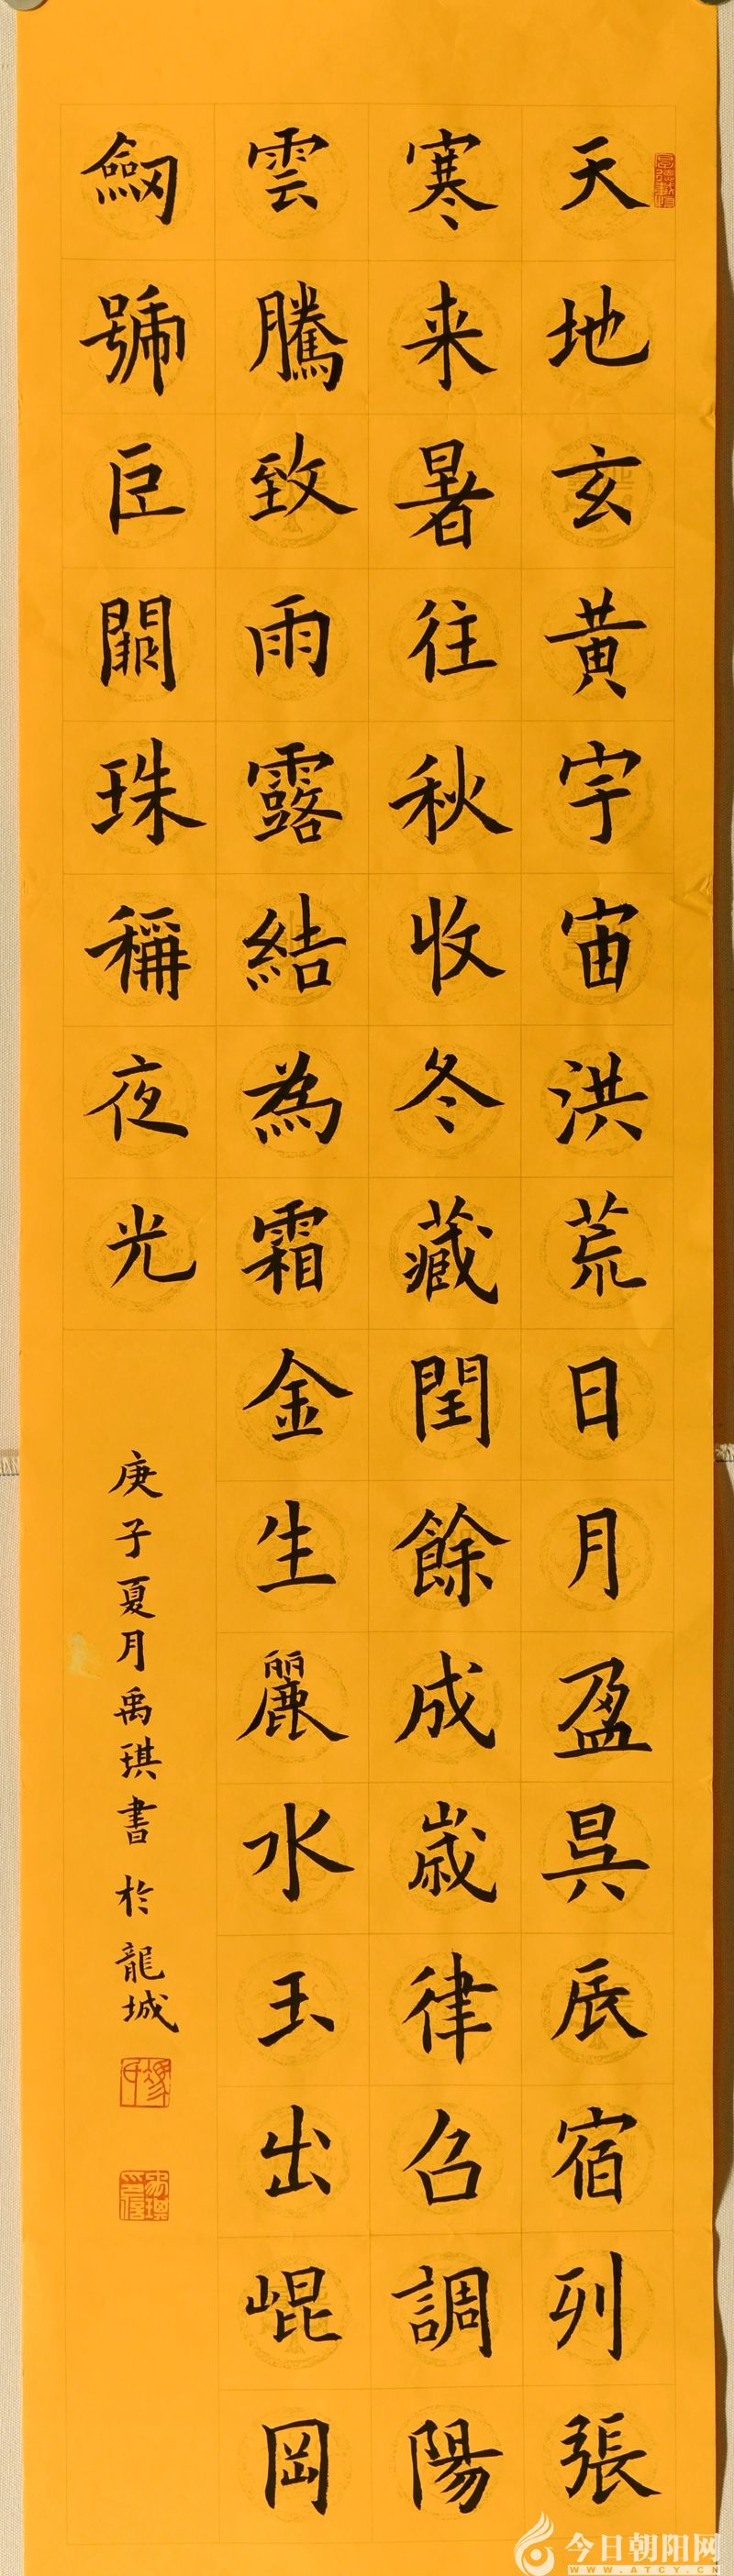 厚德載物
天地玄黃宇宙洪荒日月盈昃辰宿列張
寒来暑往秋收冬藏閏餘成嵗律召調陽
雲騰致雨露結為霜金生麗水玉出崐岡
劒號巨闕珠稱夜光
庚子夏月禹琪書於龍城
今日朝阳网
WWW.ATCY.CN